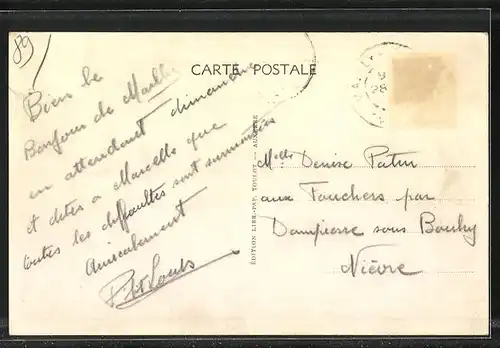 89
CARTE POSTALE
Bien le
Bonjour de Mailly
en attendant dimanche
et dites a Marcelle que
toutes les diffaultes sont surmontées
Amicalement
ÉDITION LIBR.-PAP. TOULOT — AUXERRE
Melle Denise Patin
aux Fouchers par
Dampierre sous Bouhy
Nièvre